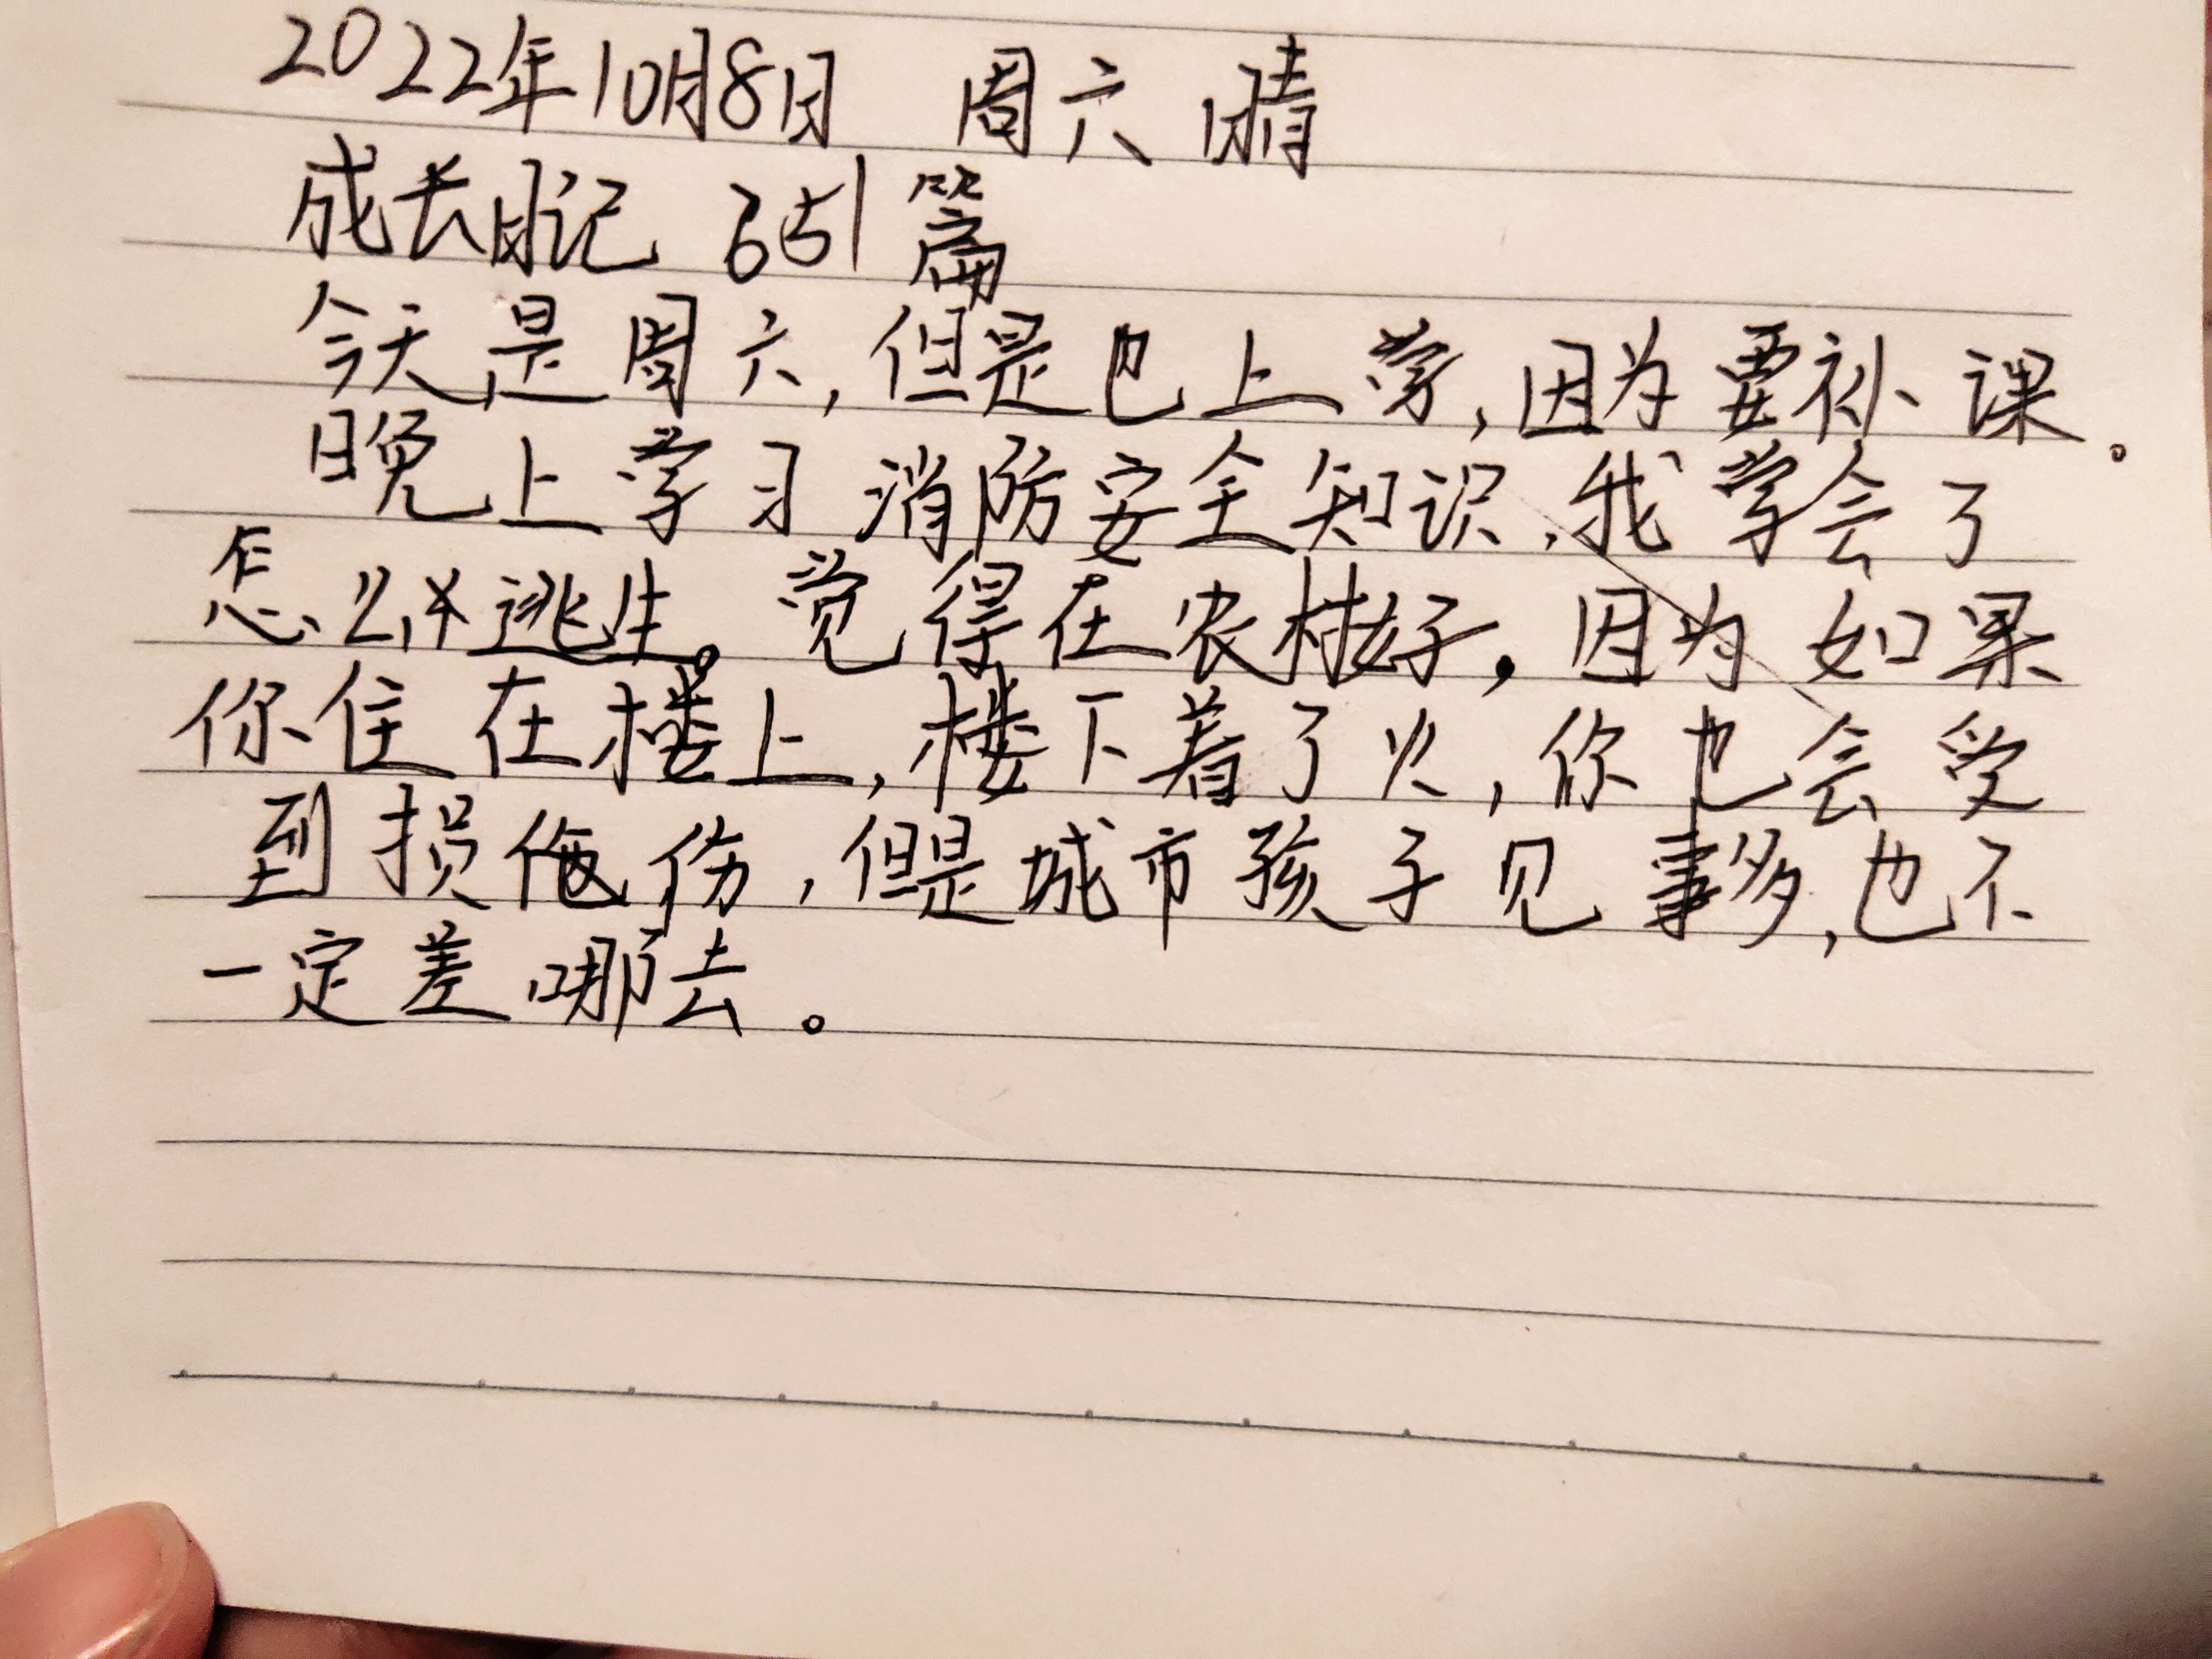 2022年10月8日 周六 晴
成长日记 651篇
今天是周六,但是也上学,因为要补课。
晚上学习消防安全知识,我学会了
怎么样逃生。觉得在农村好,因为如果
你住在楼上,楼下着了火,你也会受
到损伤,但是城市孩子见事多,也不
一定差哪去。